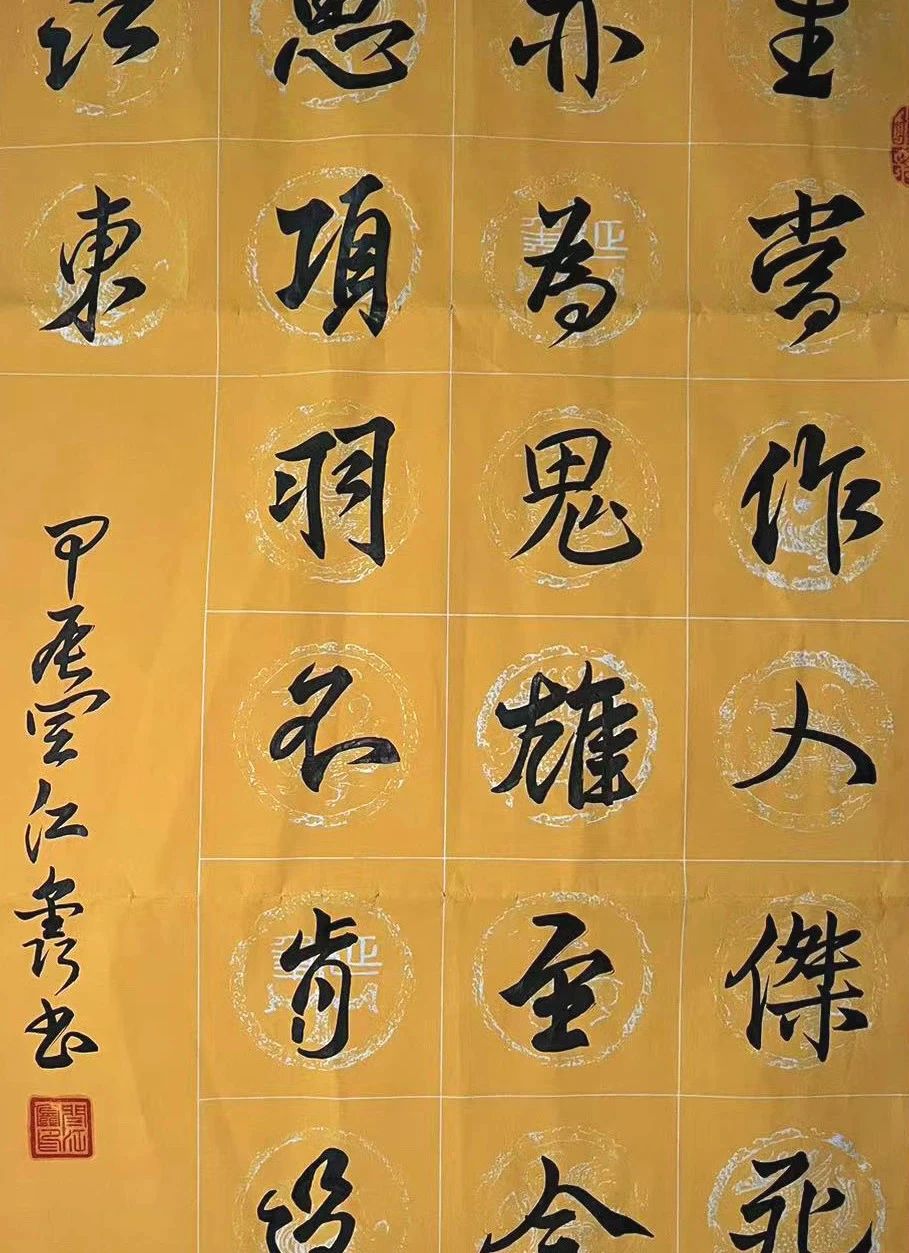 生當作人傑死
亦為鬼雄至今
思項羽不肯過
江東
甲辰閆江鑫書